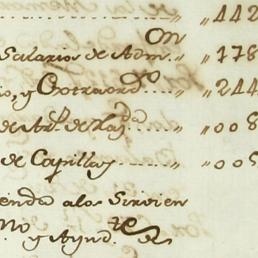 „ 442
Salarios de Adm.on „ 178
io, y Extraord.o „ 244
de „ 008
de Capillas „ 005
enda a los Sirvien
no y Ayud.tes